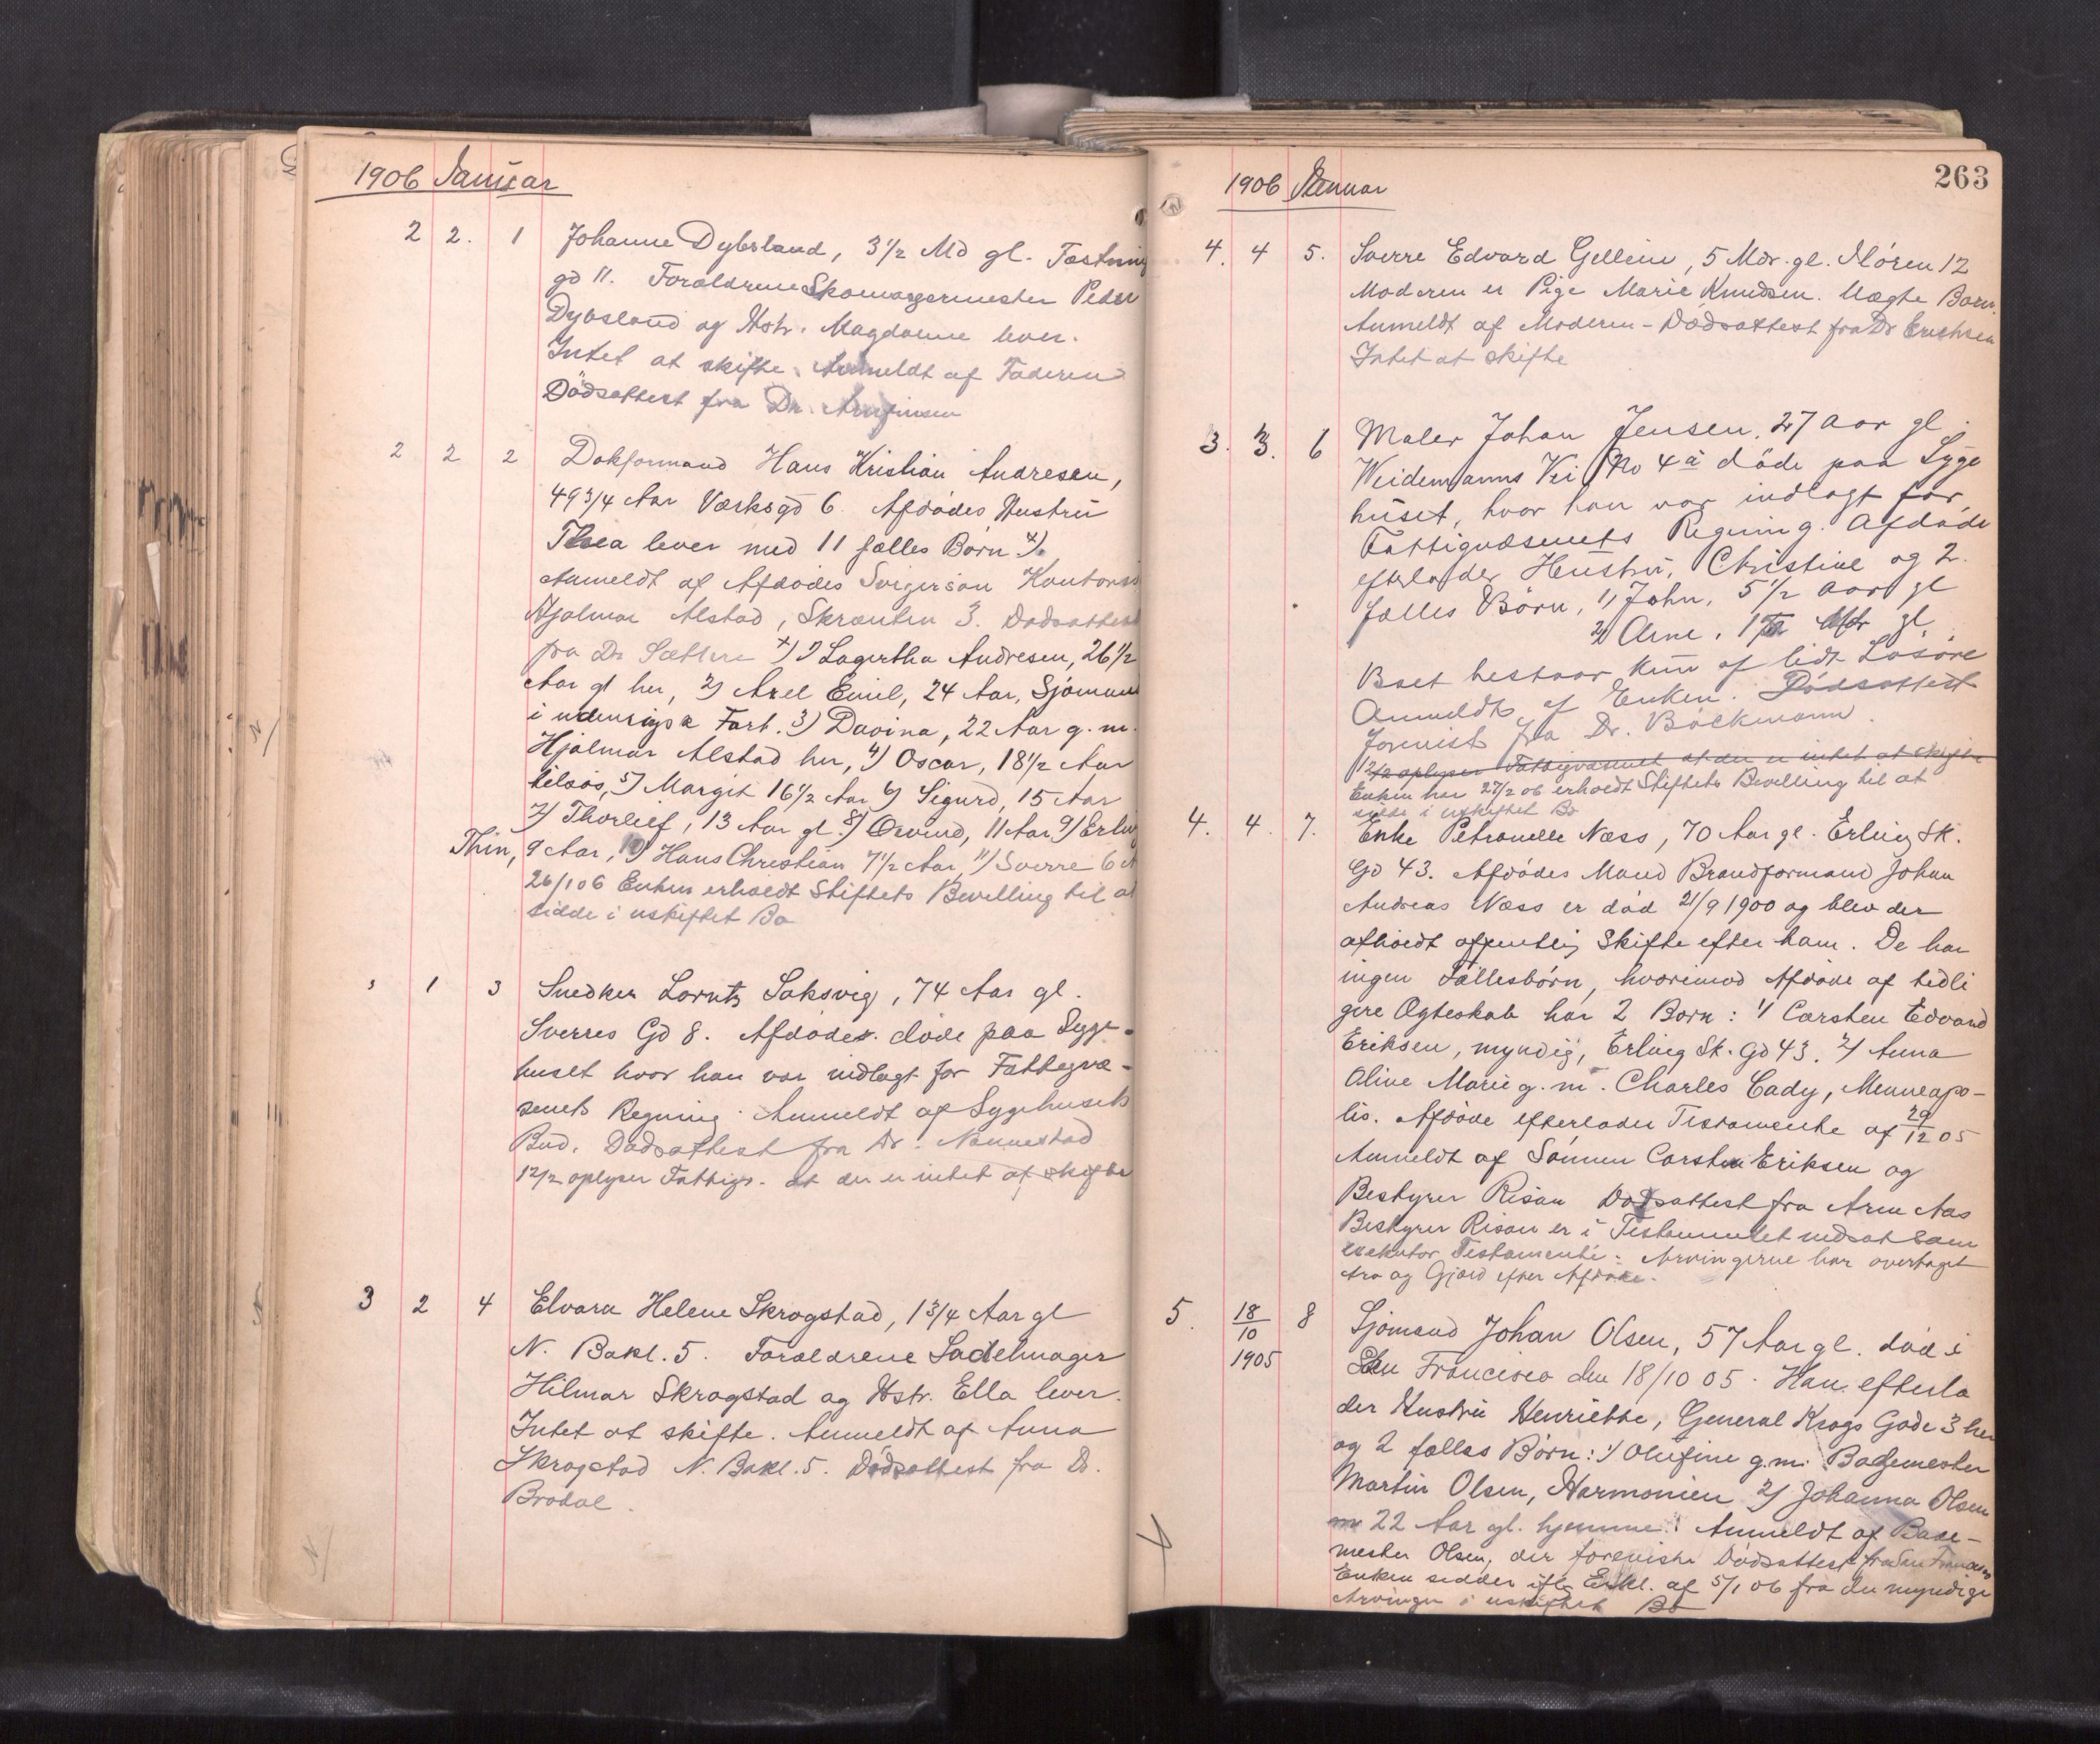 1906 Januar
2 2. 1 Johanne Dybsland, 3 1/2 Md gl. Fæstning
gd 11. Forældrene Skomagermester Peder
Dybsland og Hstr. Magdalene lever.
Intet at skifte. Anmeldt af Faderen
Dödsattest fra Dr. Arnfinsen
2 2 2 Dokformand Hans Kristian Andresen,
49 3/4 Aar Værksgd 6. Afdødes Hustru
Thea lever med 11 fælles Børn x).
Anmeldt af Afdødes Svigersøn Kontorist
Hjalmar Alstad, Skrænten 3. Dødsattest
fra Dr Sættere x) 1) Lagertha Andresen, 26 1/2
Aar gl her, 2) Axel Emil, 24 Aar, Sjømand
i udenrigsk Fart. 3) Davina, 22 Aar g. m.
Hjalmar Alstad her, 4) Oscar, 18 1/2 Aar
tilsøs, 5) Margit 16 1/2 Aar 6) Sigurd, 15 Aar
7) Thorleif, 13 Aar gl. 8) Øivind, 11 Aar 9) Erling
Thin, 9 Aar, 10) Hans Christian 7 1/2 Aar, 11) Sverre 6 A
26/1 06 Enken erholdt Stiftets Bevilling til at
sidde i uskiftet Bo
3 1 3 Snedker Lorntz Saksvig, 74 Aar gl.
Sverres Gd 8. Afdøde døde paa Syge-
huset hvor han var indlagt for Fattigvæ-
senets Regning. Anmeldt af Sygehusets
Bud. Dødsattest fra Dr. Nannestad
12/2 oplyser Fattigv. at der er intet at skifte
3 2 4 Elvara Helene Skrogstad, 1 3/4 Aar gl
N. Bakl. 5. Forældrene Sadelmager
Hilmar Skrogstad og Hstr. Ella lever.
Intet at skifte. Anmeldt af Anna
Skrogstad N. Bakl. 5. Dödsattest fra Dr.
Brodal.
263
1906 Januar
4. 4 5. Sverre Edvard Gellein, 5 Mdr. gl. Møren 12
Moderen er Pige Marie Knudsen. Uægte Barn.
Anmeldt af Moderen - Dødsattest fra Dr Erichsen
Intet at skifte
3. 3. 6 Maler Johan Jensen, 27 Aar gl.
Weidemanns Vei No 4a døde paa Syge
huset, hvor han var indlagt for
Fattigvæsenets Regning. Afdøde
efterlader Hustru, Christine og 2
fælles Børn, 1) John, 5 1/2 Aar gl
2) Arne, gl.
Boet bestaar kun af lidt Løsøre
Anmeldt af Enken. Dødsattest
forevist fra Dr. Böckmann.
12/2 oplyser Fattigvæsenet at der er intet at skifte
Enken har 27/2 06 erholdt Stiftets Bevilling til at
sidde i uskiftet Bo
4. 4. 7. Enke Petronelle Næss, 70 Aar gl. Erling Sk.
Gd 43. Afdødes Mand Brandformand Johan
Andreas Næss er død 21/9 1900 og blev der
afholdt offentlig Skifte efter ham. De har
ingen Fællesbörn, hvorimod Afdøde af tidli
gere Ægteskab har 2 Børn: 1) Carsten Edvard
Eriksen, myndig, Erling Sk. Gd 43. 2) Anna
Oline Marie g. m. Charles Cady, Menneapo-
lis. Afdøde efterlader Testamente af 29/12 05
Anmeldt af Sønnen Carsten Eriksen og
Bestyrer Risan Dødsattest fra Arne Aas
Bestyrer Risan er i Testamentet indsat som
exekutor Testamenti. Arvingerne har overtaget
Arv og Gjæld efter Afdøde.
5. 18/10 1905 8 Sjømand Johan Olsen, 57 Aar gl. død i
San Francisco den 18/10 05. Han efterla
der Hustru Henriette, General Krogs Gade 3 her
og 2 fælles Børn: 1) Olufine g. m. Bagermester
Martin Olsen, Harmonien 2) Johanna Olsen
22 Aar gl. hjemme. Anmeldt af Bager-
mester Olsen, der foreviste Dødsattest fra San Francisco
Enken sidder iflg Erkl. af 5/1 06 fra de myndige
Arvinger i uskiftet Bo